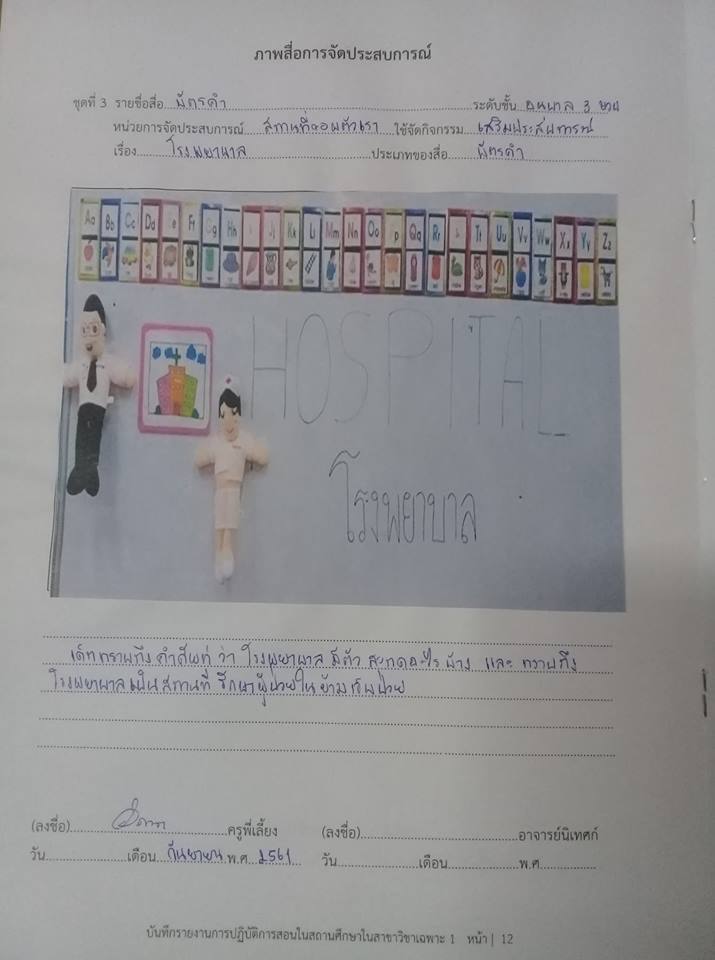 ภาพสื่อการจัดประสบการณ์
ชุดที่ 3 รายชื่อสื่อ บัตรคำ ระดับชั้น อนุบาล 3
หน่วยการจัดประสบการณ์ สถานที่รอบตัวเรา ใช้จัดกิจกรรม เสริมประสบการณ์
เรื่อง โรงพยาบาล ประเภทของสื่อ บัตรคำ
Aa Bb Cc Dd Ee Ff Gg Hh Ii Jj Kk Ll Mm Nn Oo Pp Qq Rr Ss Tt Uu Vv Ww Xx Yy Zz
HOSPITAL
โรงพยาบาล
เด็กทราบถึงคำศัพท์ ว่า โรงพยาบาล มีตัว สะกดอะไร บ้าง และ ทราบถึง
โรงพยาบาลเป็นสถานที่ รักษาผู้ป่วยในยามเจ็บป่วย
(ลงชื่อ) ครูพี่เลี้ยง (ลงชื่อ) อาจารย์นิเทศก์
วัน เดือน กันยายน พ.ศ. 2561 วัน เดือน พ.ศ.
บันทึกรายงานการปฏิบัติการสอนในสถานศึกษาในสาขาวิชาเฉพาะ 1 หน้า | 12